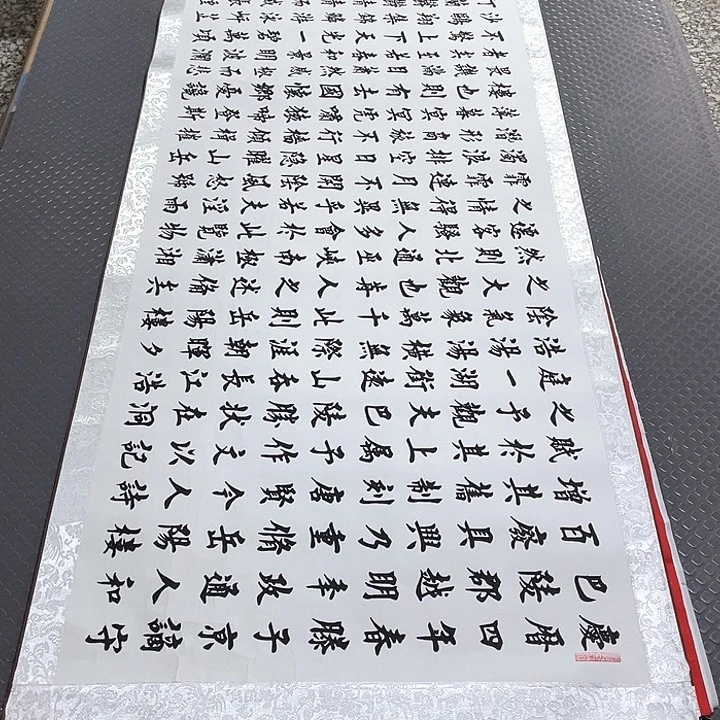 慶暦四年春滕子京謫守
巴陵郡越明年政通人和
百廢具興乃重修岳陽樓
增其舊制刻唐賢今人詩
賦於其上属予作文以記
之予觀夫巴陵勝狀在洞
庭一湖銜遠山吞長江浩
浩湯湯橫無際涯朝暉夕
陰氣象萬千此則岳陽樓
之大觀也人之述備矣
然則北通巫峽南極瀟湘
遷客騷人多會於此覽物
之情得無異乎若夫淫雨
霏霏連月不開陰風怒號
濁浪排空日星隱曜山岳
潛形商旅不行檣傾楫摧
薄暮冥冥虎嘯猿啼登斯
樓也則有去國懷鄉憂讒
畏譏滿目蕭然感極而悲
者矣至若春和景明波瀾
不驚上下天光一碧萬頃
沙鷗翔集錦鱗游泳岸芷